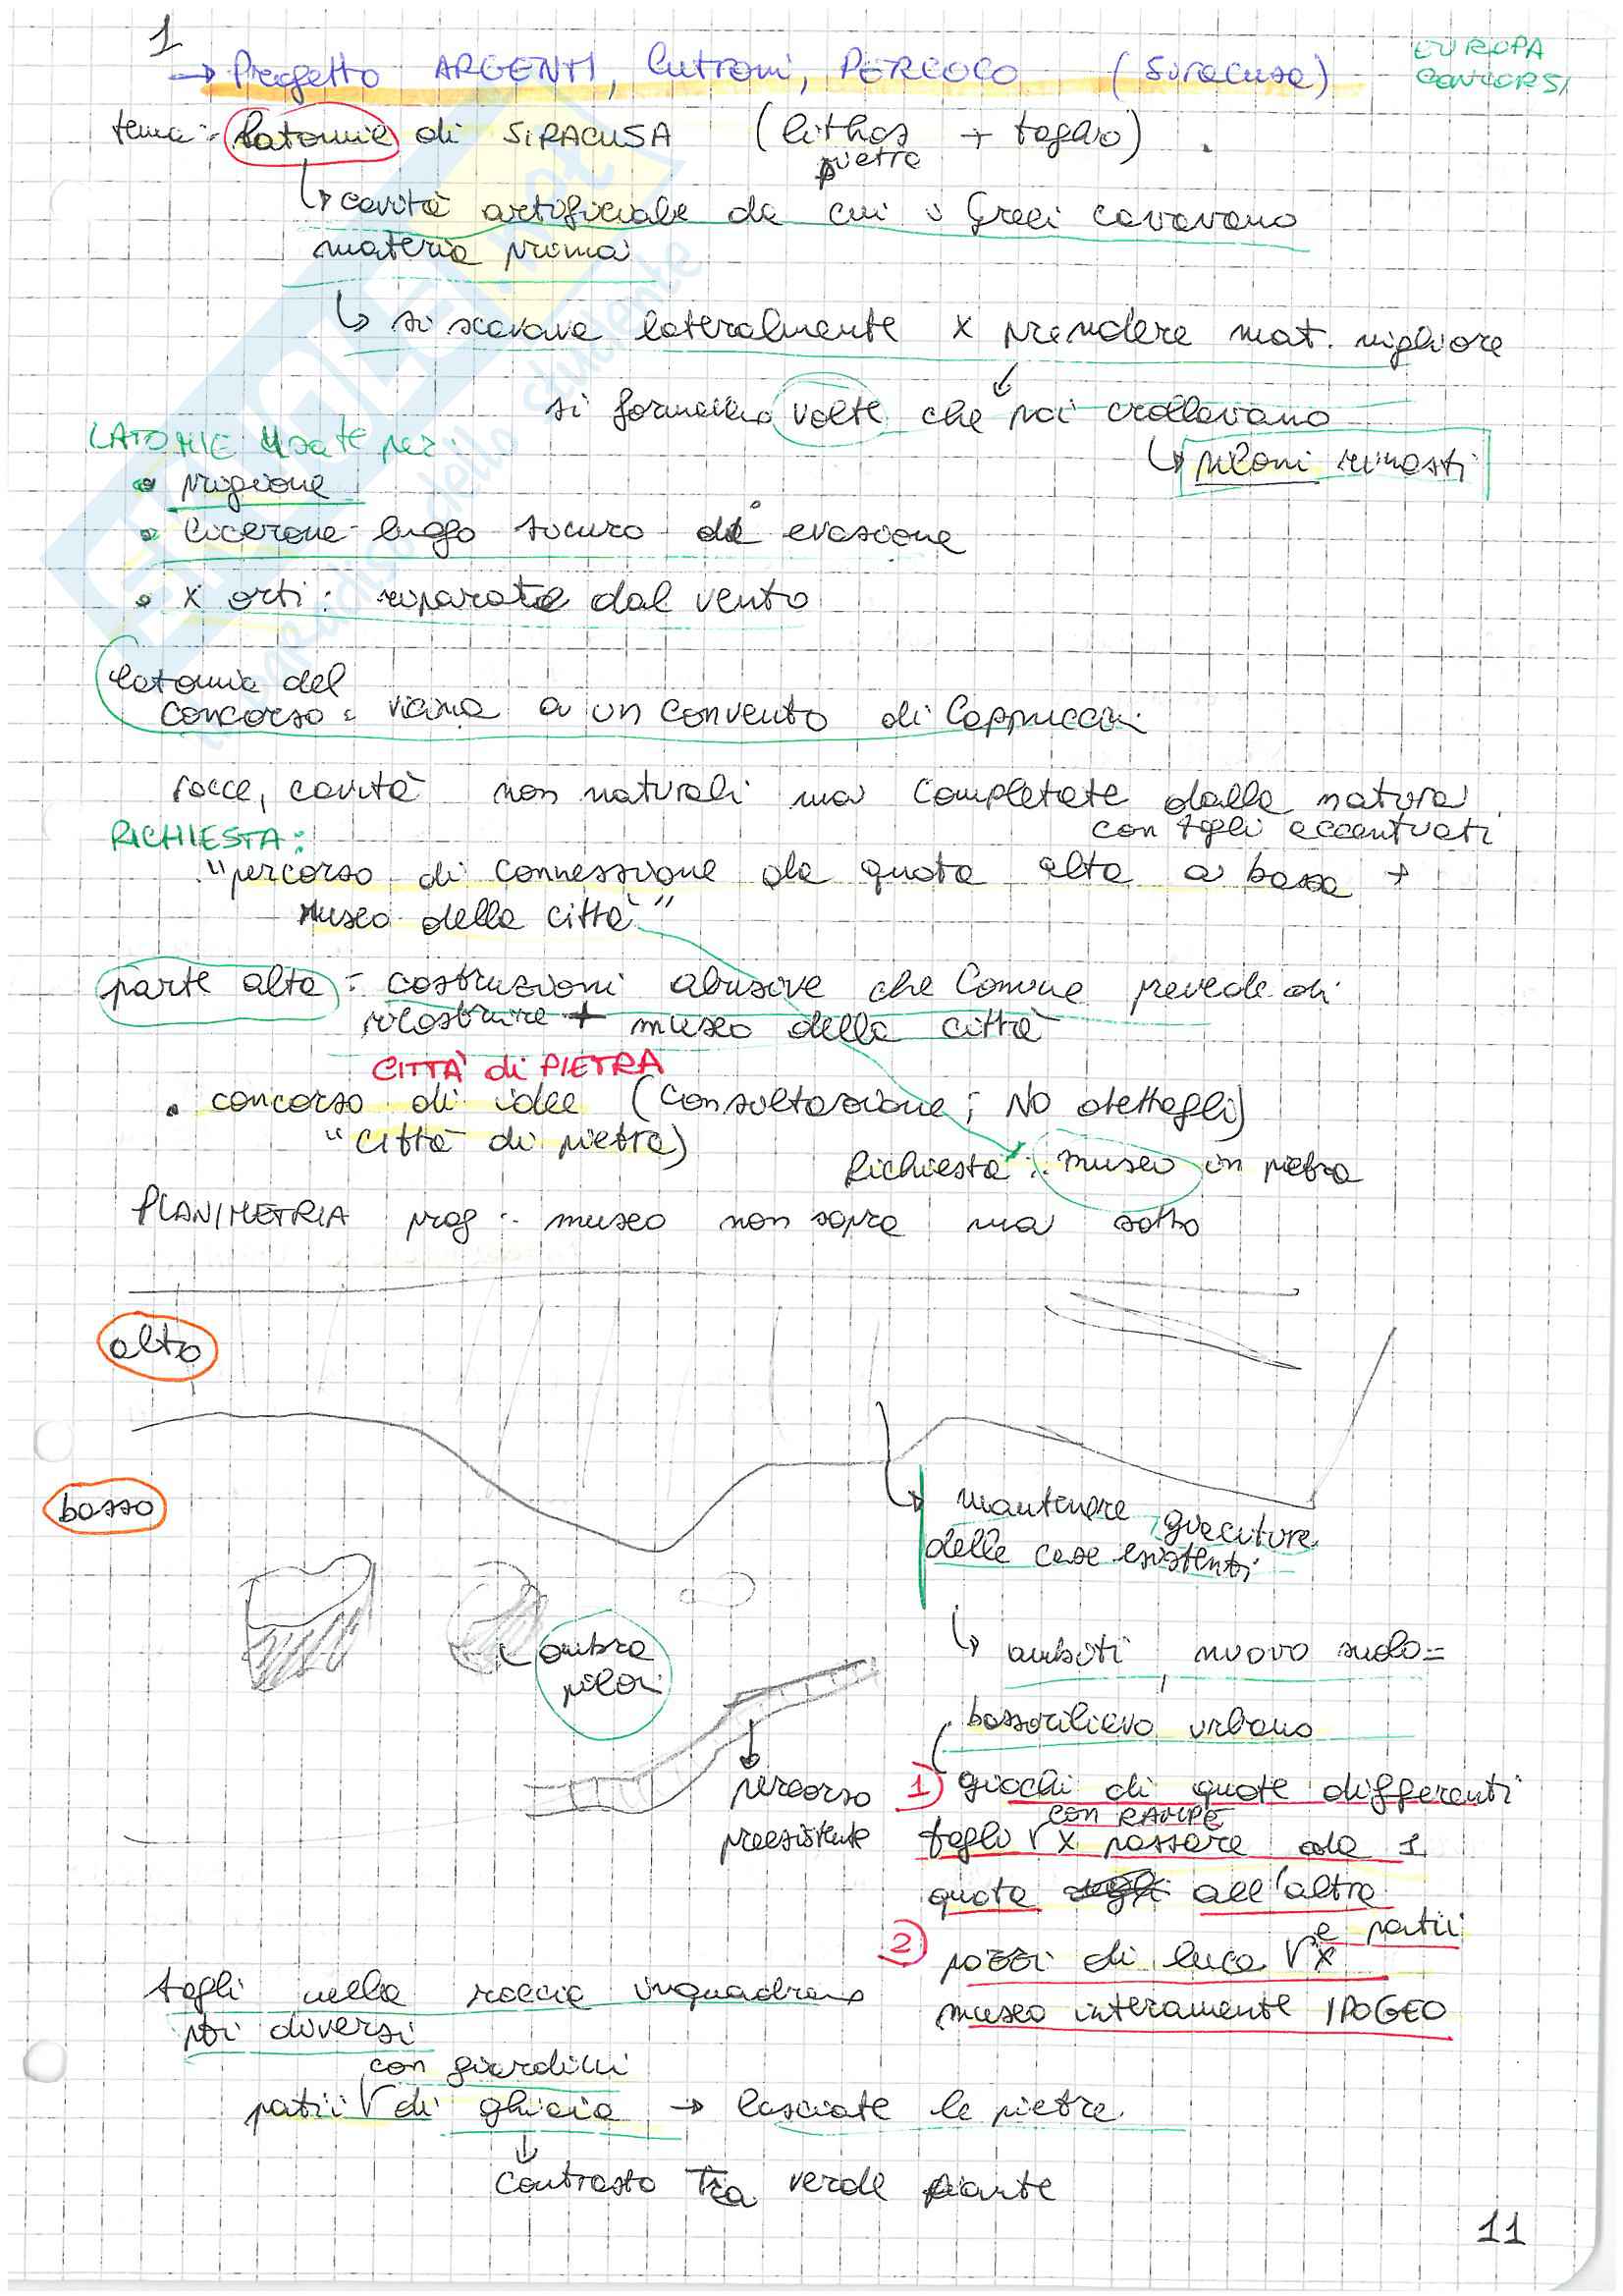 1
→ Progetto ARGENTI, Cutroni, PERCOCO (Siracusa)
EUROPA
CONCORSI
tema: latomie di SIRACUSA (lithos + taglio).
pietra
↳ cavità artificiale da cui i Greci cavavano
materia prima
↳ si scavava lateralmente x prendere mat. migliore
si formavano volte che poi crollavano
↳ piloni rimasti
LATOMIE usate per:
• prigione
• Cicerone: luogo sicuro di evasione
• x orti: riparate dal vento
latomia del
concorso: vicina a un convento di Cappuccini
rocce, cavità non naturali ma completate dalla natura
con tagli accentuati
RICHIESTA:
"percorso di connessione da quota alta a bassa +
museo della città"
parte alta: costruzioni abusive che Comune prevede di
ricostruire + museo della città
CITTÀ di PIETRA
• concorso di idee (consultazione; NO dettagli)
"città di pietra)
Richiesta: museo in pietra
PLANIMETRIA prog: museo non sopra ma sotto
alto
basso
↳ mantenere giaciture
delle case esistenti
ombra
piloni
↳ ambiti, nuovo suolo =
bassorilievo urbano
percorso
preesistente
1) giochi di quote differenti
con RAMPE
tagli √ x passare da 1
quota all'altra
e patii
2) pozzi di luce √ x
museo interamente IPOGEO
tagli nella roccia inquadrano
pti diversi
con giardini
patii √ di ghiaia → lasciate le pietre
↓
contrasto Tra verde piante
11